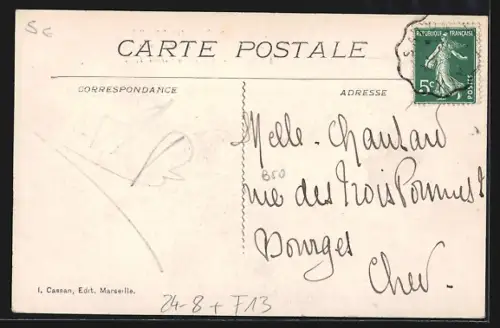 5c
CARTE POSTALE
REPUBLIQUE FRANÇAISE
5c
POSTES
CORRESPONDANCE
ADRESSE
Melle. Chautard
B50
rue des Trois Pommes
Bourges
Cher.
I. Cassan, Edit. Marseille.
24-8 + F13